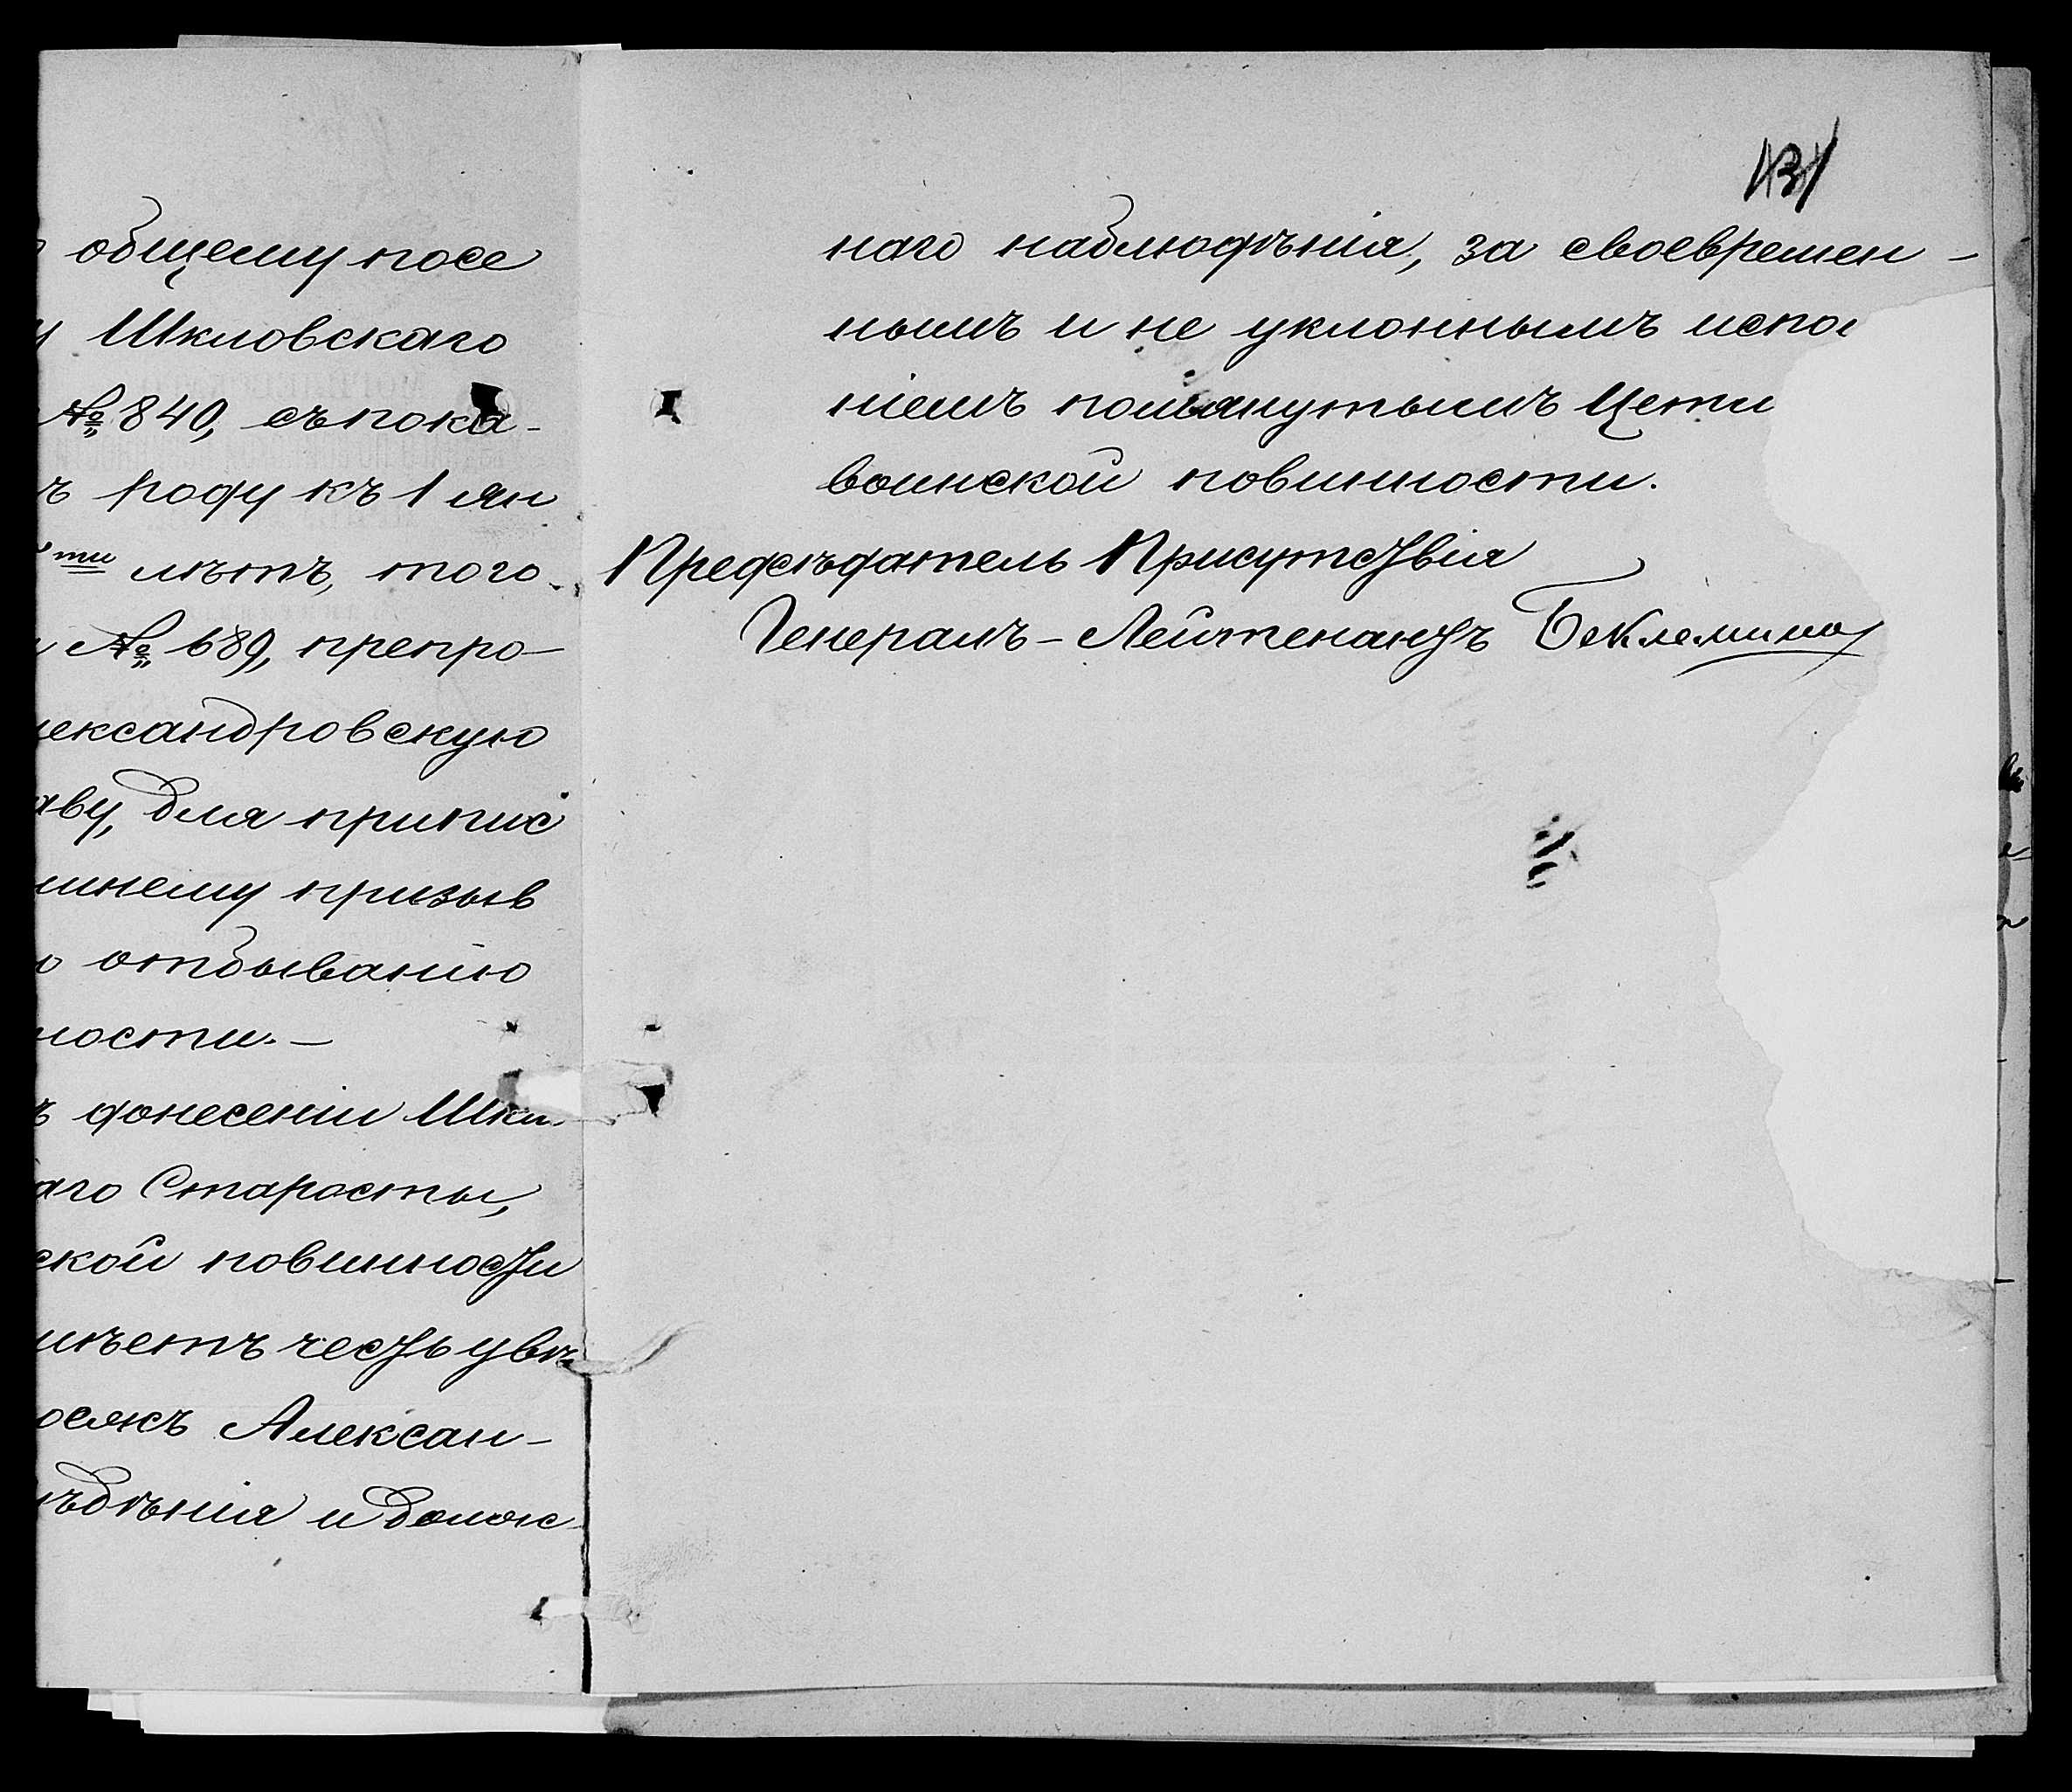 общему посе
Шкловскаго
№ 840, съ пока-
роду къ 1 Ян
ти лѣтъ, того-
№ 689, препро-
лександровскую
аву, для припис
шнему призыв
отбыванію
ности.—
донесеніи Шкл.
аго Старосты,
ской повинности
имѣетъ честь увѣ
Алексан-
ѣдѣнія и долж-
131
наго наблюдѣнія, за своевремен-
нымъ и не уклоннымъ испол
ніемъ помянутымъ Цети
воинской повинности.
Предсѣдатель Присутствія
Генералъ-Лейтенантъ Беклемишев